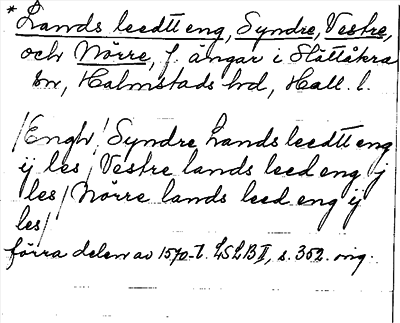 * Lands leedtt eng, Syndre, Vestre,
och Nörre, f. ängar i Slättåkra
sn, Halmstads hd, Hall. l.
/Engh/ Syndre Lands leedtt eng
ij les/ Vestre lands leed eng j
les/ Nörre lands leed eng ij
les/
förra delen av 1570-t. LSLB II, s. 352. orig.